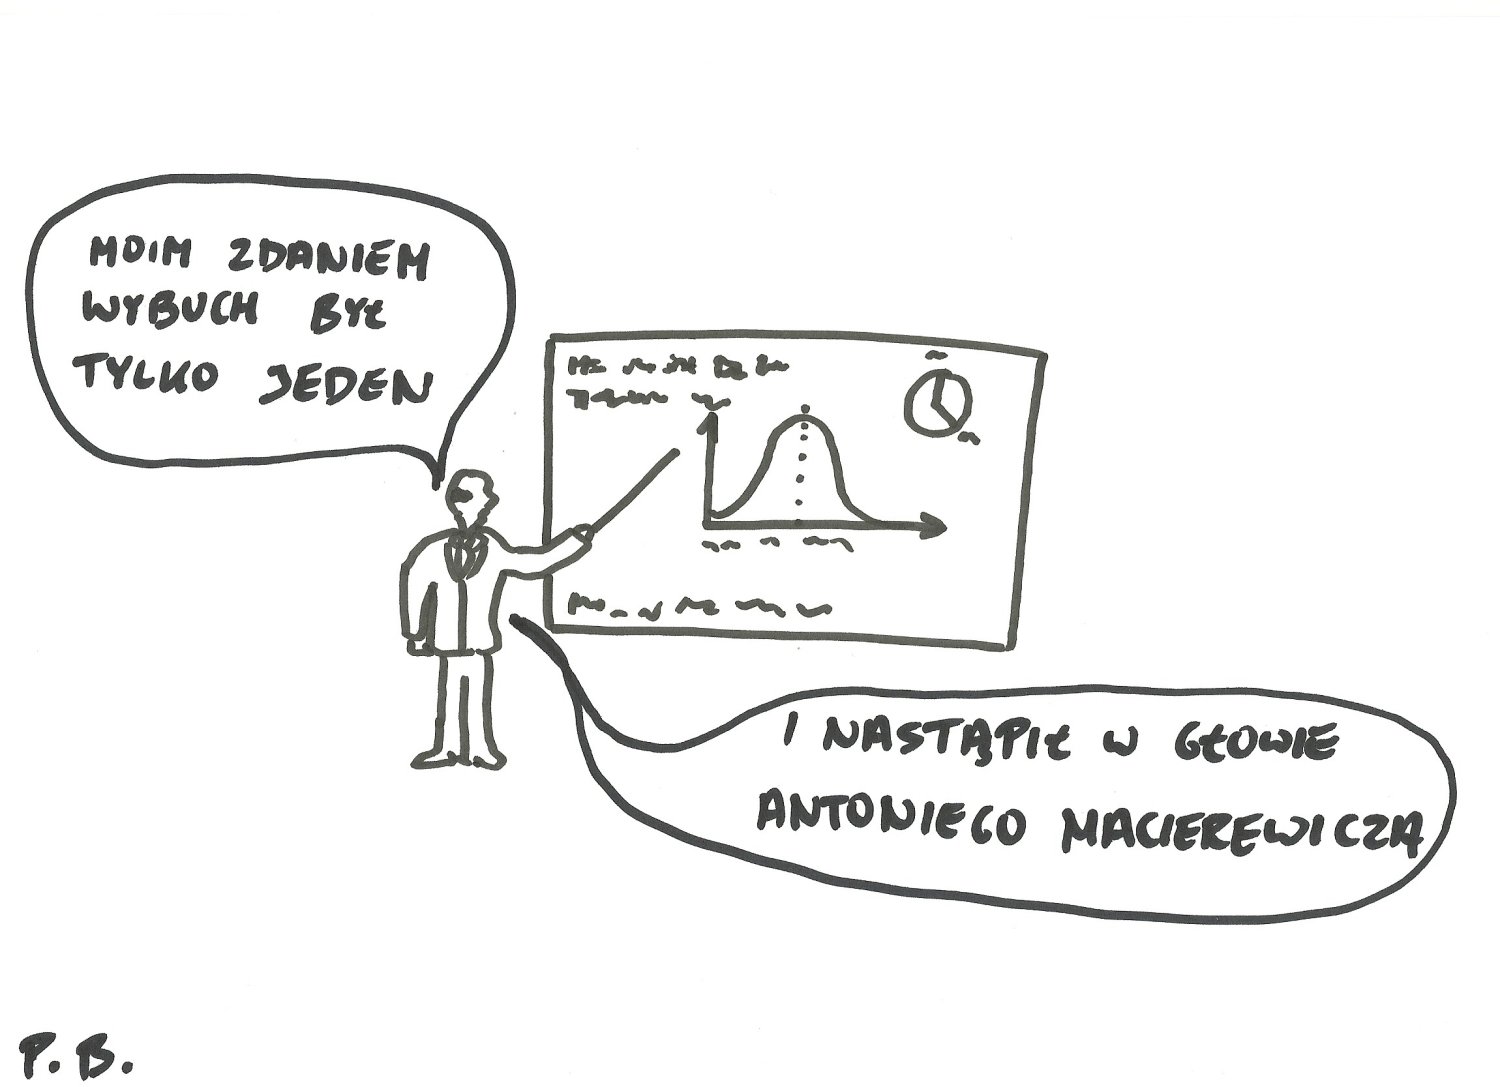 MOIM ZDANIEM
WYBUCH BYŁ
TYLKO JEDEN
I NASTĄPIŁ W GŁOWIE
ANTONIEGO MACIEREWICZA
P.B.